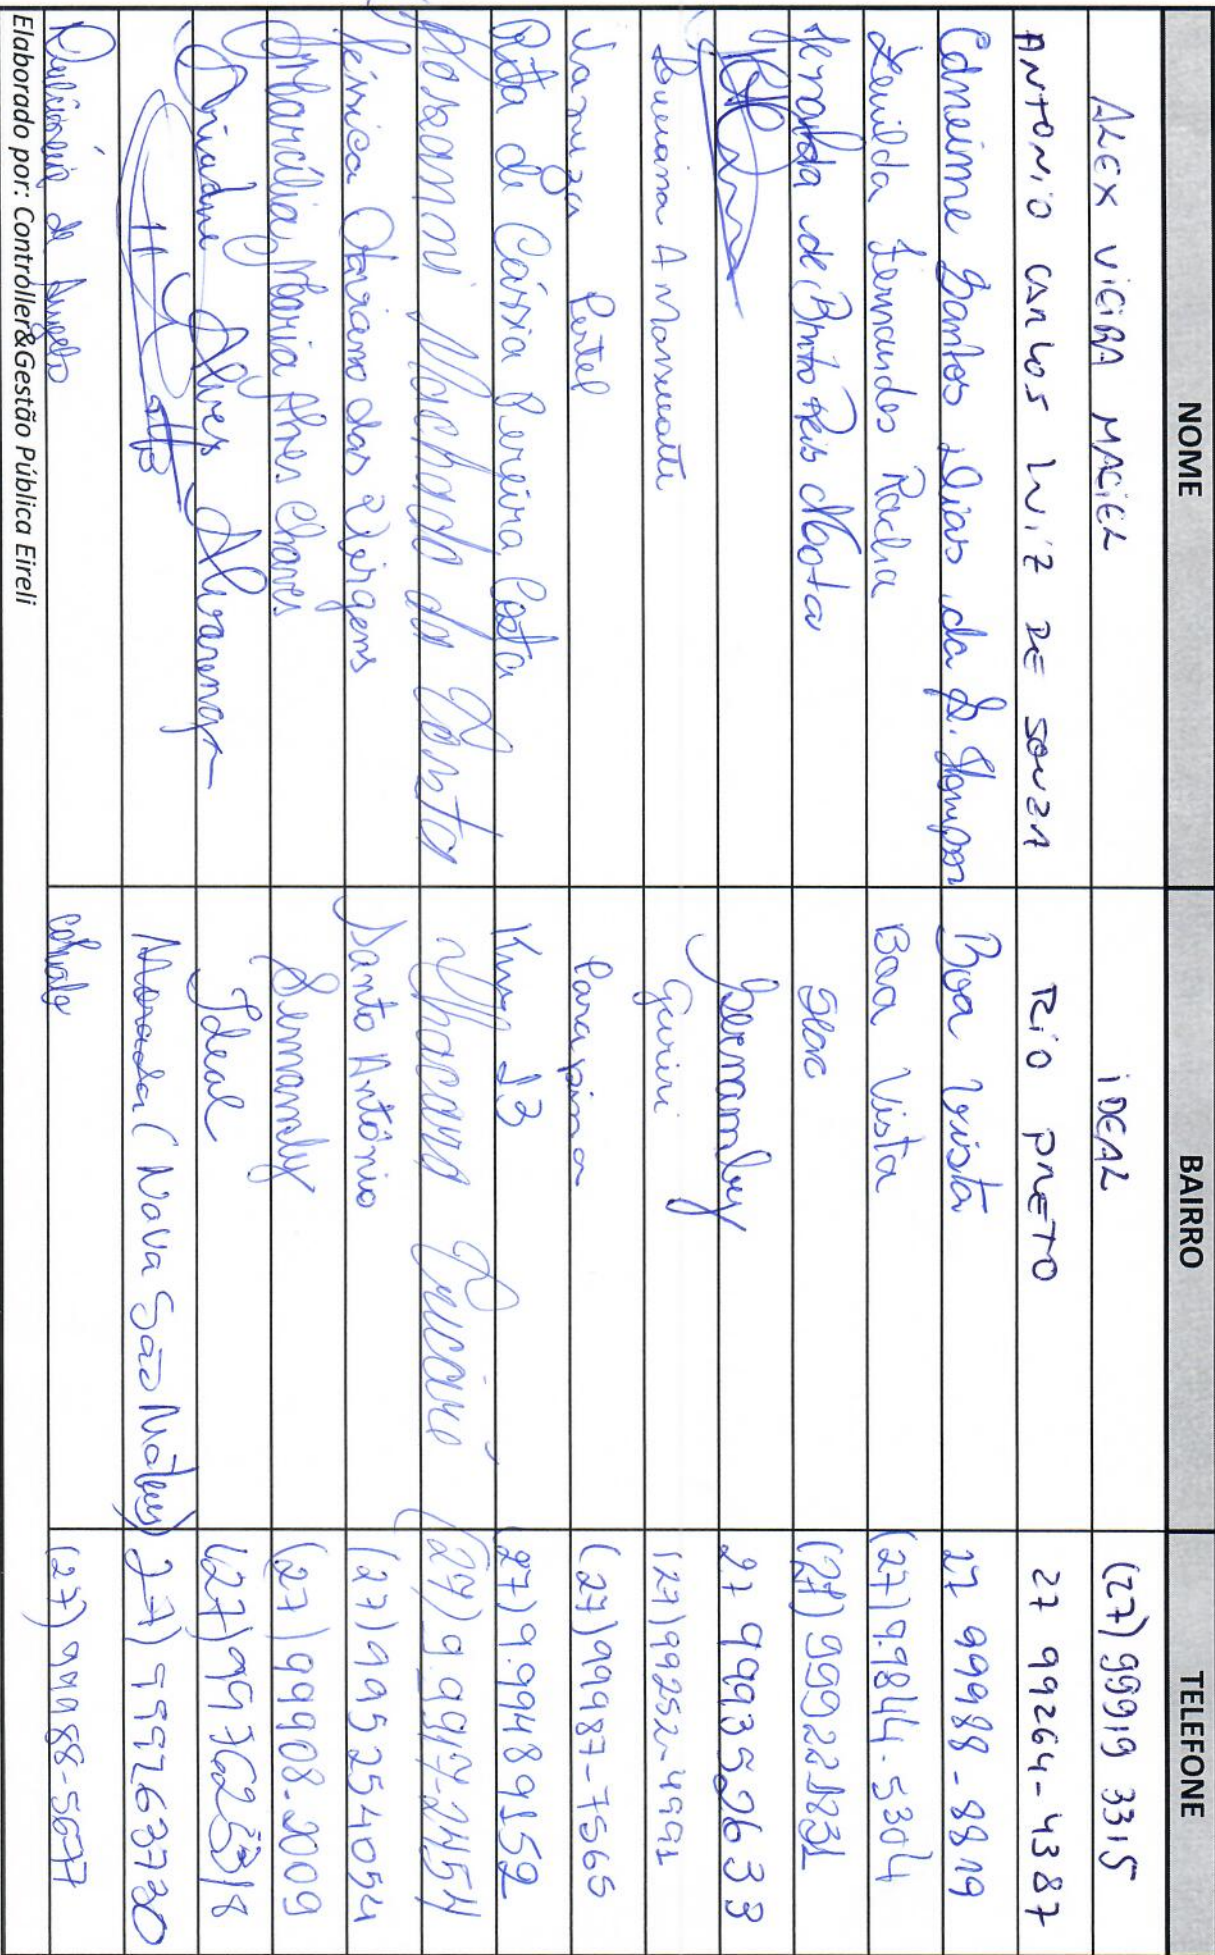 NOME BAIRRO TELEFONE
ALEX VIEIRA MACIEL IDEAL (27) 99919 3315
ANTONIO CARLOS LUIZ DE SOUZA RIO PRETO 27 99264-4387
Edneime Santos Dias da S. Boa Vista 27 99988-8819
Zenilda Fernandes Rocha Boa Vista (27) 9.9844-5304
de Brito Reis Mota (27) 999221831
Sernamby 27 999359633
Luciana A Guriri (27) 99252-4991
Vanuza Pertel (27) 99987-7565
Rita de Cássia Pereira Costa Km 13 (27) 9.99489152
Rosani Machado da Costa (27) 9.9947-2454
Jéssica Caviano das Virgens Santo Antônio (27) 995254054
Marcília Maria Alves Chaves Sernamby (27) 99908-2009
Ariadne Alves Alvarenga Ideal (27)
Morada (Nova São Mateus) 27) 999763730
de Angelo (27) 99988-5677
Elaborado por: Contróller&Gestão Pública Eireli